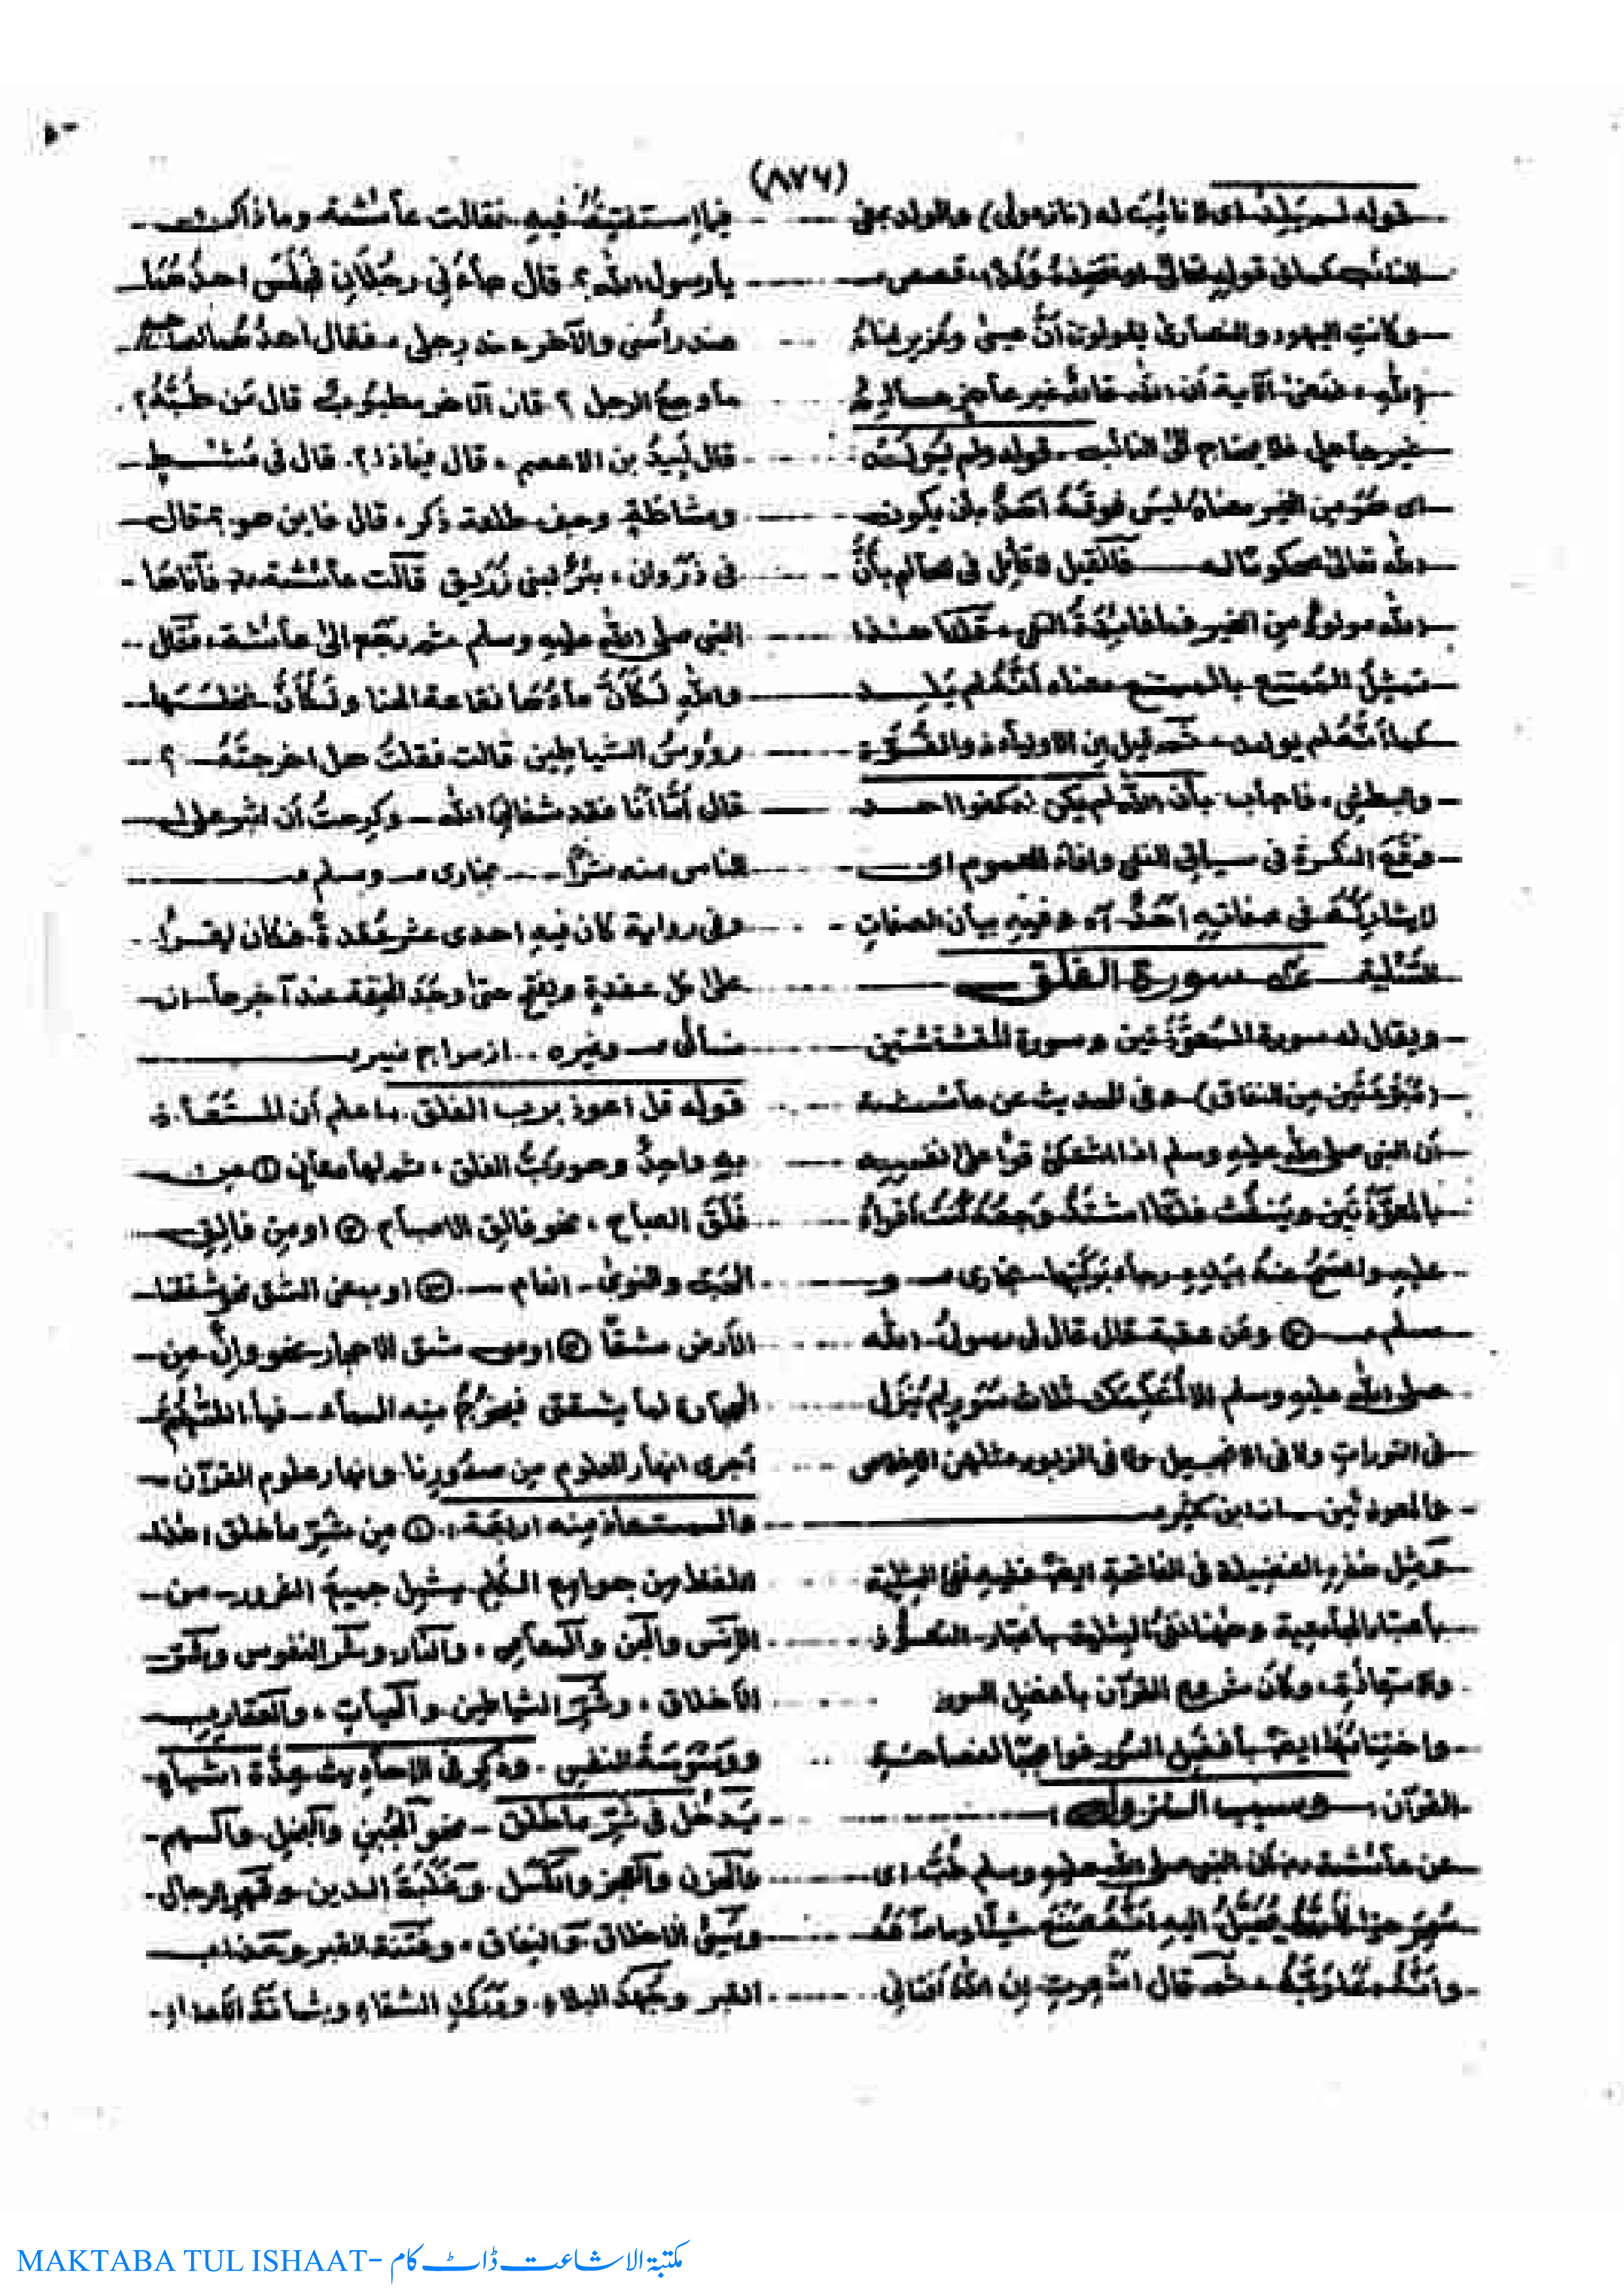 (٨٧٦)
قوله لم يلد اى لا نائب له والولد بمعنى
النائب كما فى قوله تعالى او نتخذه ولدا، قصص
وكانت اليهود والنصارى يقولون أنَّ عيسىٰ وعزير ابناءُ
اللهِ، فمعنىٰ الآية أن الله قادرٌ غير عاجز عالمٌ
غير جاهل فلا يحتاج الىٰ النائب. قوله ولم يُولَد
اى هُوَ من الغير معناه ليسَ فوقَهُ أحَدٌ بان يكون
الله تعالىٰ محكومًا له فان قيل لا قائل فى العالم بأنَّ
الله مولودٌ مِن الغير فما فائدةُ النفى، قلنا هذا
تمثيلُ المُمتنع بالممتنع معناه أنَّهُ لم يَلِد
كما أنَّهُ لم يولد، ثمّ قيل إن الاولياء ذو القُوَّةِ
والبطش، فاجاب بأن الله لم يكن له كفوا احد
وَقَعَ النكرة فى سياق النفى وافاد العموم اى
لا يشاركُهُ فى صفاتِهِ اَحَدٌ. وفيهِ بيان الصفاتِ
السَّلبية سورة الفلق
ويقال له سورة المُعوَّذتين وسورة المقشقشتين
(مُبَرِّئتين مِن النفاق) وفى الحديث عن عائشة
أن النبى صلى الله عليهِ وسلم اذا اشتكىٰ قرأ علىٰ نفسِهِ
بالمعوَّذتَين ويَنفُث فلمّا اشتَدَّ وَجعُهُ كُنتُ أقرأُ
عليهِ وامسَحُ عنهُ بيَدِهِ رجاء بَرَكَتِها بخارى و
مسلم ② وعَن عقبة قال قال لى رسولُ الله
صلى الله عليهِ وسلم الا أُعَلِّمَكَ ثلاث سُوَرٍ لم يُنزَل
فى التوراتِ ولا فى الانجيل ولا فى الزبور مثلهن الاخلاص
والمعوذتين ابن كثير
ومِثل هٰذهِ الفضيلة فى الفاتحةِ ايضًا
بأعتبار الجامعية وههنا نفىُ المثلية باعتبار التعوُّذ
والاستعاذةِ، وكانَ شروع القرآن بأفضلِ السور
واختتامُها ايضًا بأفضَلِ السُّور
القرآن: وسبب النزول:
عن عائشة رض أن النبى صلى الله عليهِ وسلم طُبَّ اى
سُحِرَ حتىٰ يُخَيَّلُ اليهِ انَّهُ صَنَعَ شيئًا وما صَنَعَهُ
وانَّهُ دعا ربَّهُ، ثمّ قال اشعرتِ اِن اللهَ أفتانى
فيما استفتيتُهُ فيهِ فقالت عائشة وما ذاك
يا رسول الله؟ قال جاءَنى رجُلانِ فجَلَسَ احدُهُما
عند رأسى والآخر عند رِجلى، فقال احدُهُما لصاحبِهِ
ما وجعُ الرجل؟ قال الآخر مطبُوبٌ قال مَن طَبَّهُ؟
قال لَبيدُ بن الاعصم، قال فيماذا؟ قال فى مُشطٍ
ومُشاطةٍ وجف طلعة ذكر، قال فاين هو؟ قال
فى ذَروان، بئرٌ لبنى زُرَيق قالت عائشة رض فأتاها
النبى صلى الله عليهِ وسلم ثم رَجَع الىٰ عائشة، فقال
واللهِ لَكَأنَّ ماءَها نقاعة الحنا ولَكَأنَّ نخلَها
رؤوسُ الشياطين قالت فقلتُ هل اخرجتَهُ؟
قال أمَّا أنا فقد شفانىَ الله وكرهتُ أن اثير على
الناس منه شرًّا بخارى ومسلم
وفى رواية كان فيهِ احدى عشر عُقدةً فكان يقرأُ
علىٰ كل عقدةٍ حتىٰ وجَدَ الخِفة عند آخرها
نسائى وغيره از سراج منير
قوله قل اعوذ برب الفلق. اعلم أن المستعاذ
بهِ واحِدٌ وهو ربُّ الفلق، ثم لها معانٍ ① من
فَلَقَ الصباح، نحو فالق الاصباح ② او من فالق
الحَبّ والنوىٰ انعام ③ او بمعنى الشق نحو شققنا
الأرض شقًّا ④ او من شق الاحجار نحو وإنَّ مِن
الحجارة لما يشقق فيخرُجُ مِنه الماء
تجرى انهار العلوم مِن صدُورِنا وانهار علوم القرآن
والمستعاذ مِنه اربعَة: ① مِن شرِّ ما خلق اهذا
اللفظ مِن جوامع الكَلِم يشمل جميع الشرور من
الإنس والجن والمعاصى، والنار وشر النفوس
الأخلاق، وشرّ الشياطين والحيات، والعقارب
ووَسوَسةُ النفس. وذُكِر فى الاحاديث عِدَّة اشياء
يَدخُل فى شرِّ ما خلق نحو الجُبنِ والبخل والهم
والحزن والعجز والكسل وغلَبَة الدين وقهر الرجال
وسَىءُ الاخلاق والنفاق، وفتنة القبر وعذاب
القبر وجَهد البلاء ودَرك الشقاء وشماتة الأعداء
MAKTABA TUL ISHAAT- مکتبۃ الاشاعت ڈاٹ کام